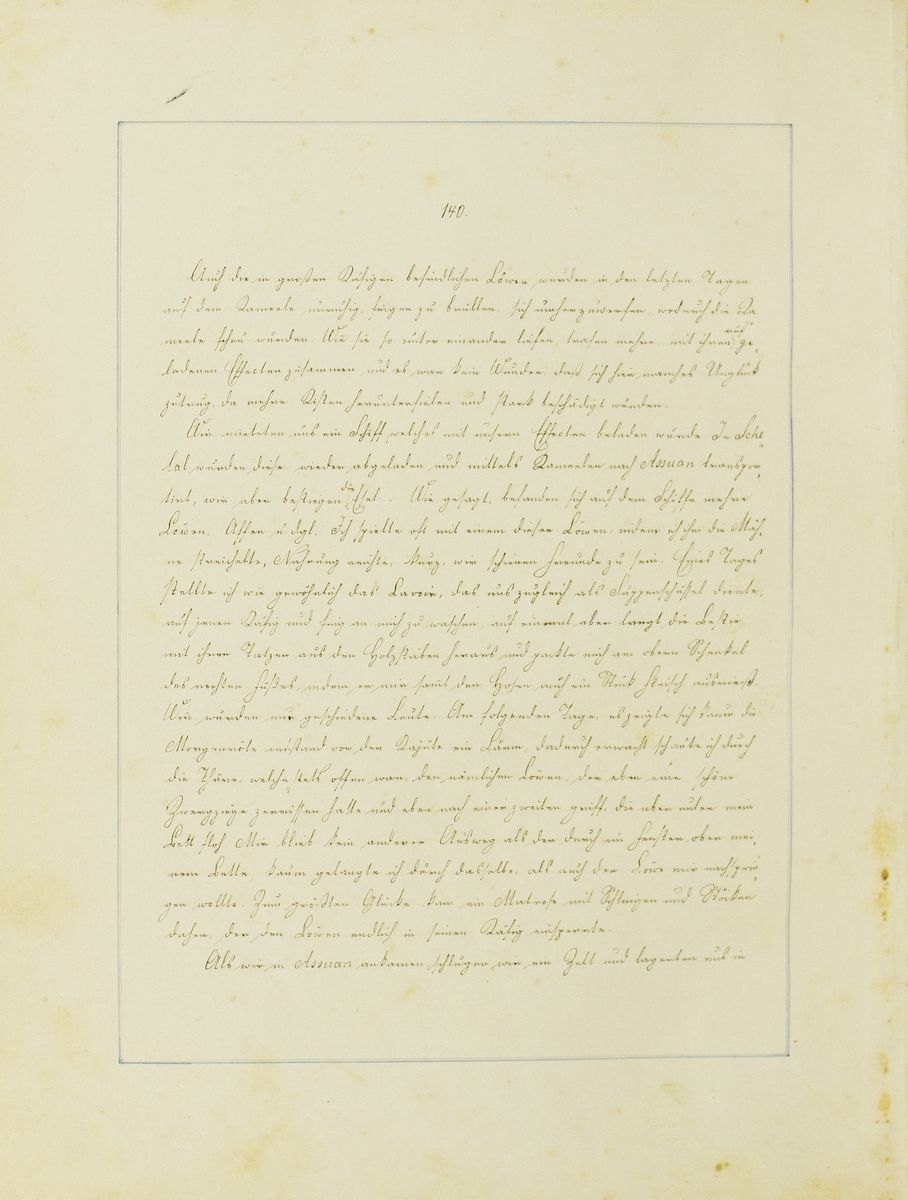 140.
Auch die in großen Käfigen befindlichen Löwen wurden in den letzten Tagen
auf dem Kameele unruhig, fingen zu brüllen, sich umherzuwerfen, wodurch die Ka
meele scheu wurden. Wie sie so unter einander liefen, trafen mehre mit ihren auf ge-
ladenen Effecten zusammen, und es war kein Wunder, daß sich hier manches Unglück
zutrug, da mehre Kisten herunterfielen und stark beschädigt wurden.
Wir mieteten uns ein Schiff welches mit unsern Effecten beladen wurde In Sche-
lal wurden diese wieder abgeladen und mittels Kameelen nach Assuan transpor-
tirt, wir aber bestiegen die Esel. Wie gesagt, befanden sich auf dem Schiffe mehre
Löwen, Affen u dgl. Ich spielte oft mit einem dieser Löwen, indem ich ihm die Mäh-
ne streichelte, Nahrung reichte, kurz, wir schienen Freunde zu sein. Eines Tages
stellte ich wie gewöhnlich das Lavoir, das uns zugleich als Suppenschüssel diente,
auf jenen Käfig und fing an mich zu waschen, auf einmal aber langt die Bestie
mit ihren Tatzen aus den Holzstäben heraus und packte mich am obern Schenkel
des rechten Fußes, indem er mir samt den Hosen auch ein Stük Fleisch ausrieß.
Wir wurden nur geschiedene Leute. Am folgenden Tage, es zeigte sich kaum die
Morgenröte entstand vor der Kajüte ein Lärm, dadurch erwacht schaute ich durch
die Thüre, welche stets offen war, den nämlichen Löwen, der eben eine schöne
Zwergziege zerrissen hatte und eben nach einer zweiten griff, die aber unter mein
Bett floh Mir blieb kein anderer Ausweg als der durch ein Fenster ober mei-
nem Bette, kaum gelangte ich durch dasselbe, als auch der Löwe mir nachsprin-
gen wollte. Zum größten Glücke kam ein Matrose mit Schlingen und Stöcken
daher, der den Löwen endlich in seinen Käfig einsperrte.
Als wir in Assuan ankamen, schlugen wir ein Zelt und lagerten uns in